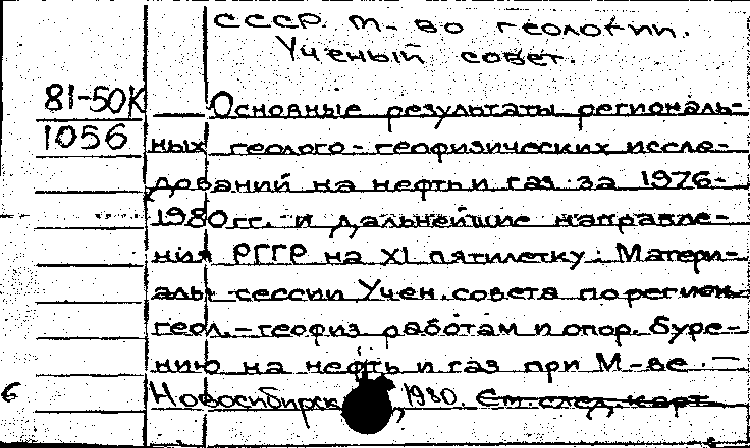 СССР. М-во геологии.
Ученый совет.
81-50К
1056
Основные результаты региональ-
ных геолого-геофизических иссле-
дований на нефть и газ за 1976-
1980 гг. и дальнейшие направле-
ния РГГР на XI пятилетку: Матери-
алы сессии Учен. совета по регион.
геол.-геофиз работам и опор. буре-
нию на нефть и газ при М-ве. —
6
Новосибирск, 1980. См. след. карт.